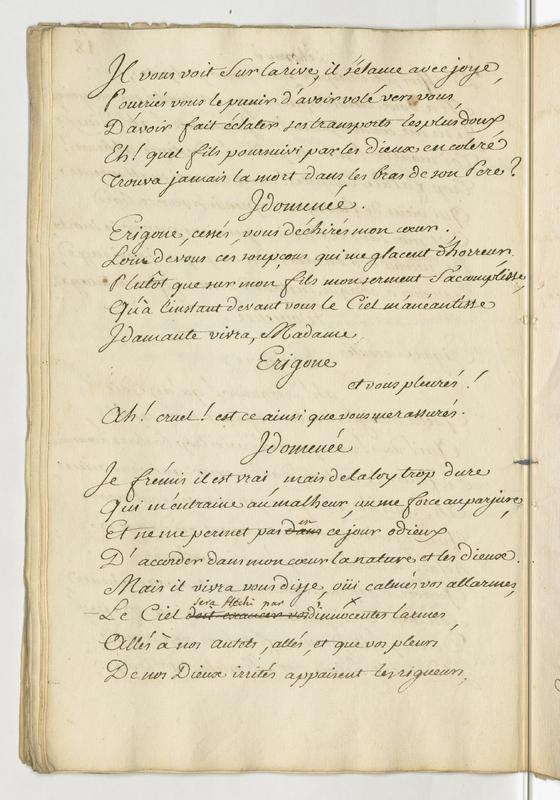 Il vous voit sur la rive, il s'élance avec joye,
Pourriés vous le punir d'avoir volé vers vous,
D'avoir fait éclater ses transports les plus doux
Eh! quel fils poursuivi par les dieux en coleré
Trouva jamais la mort dans les bras de son Pere?
Idomeneé.
Erigone, cessés, vous déchirés mon cœur.
Loin de vous ces soupçons qui me glacent d'horreur.
Plutôt que sur mon fils mon serment s'acomplisse,
Qu'à l'instant devant vous le Ciel m'anéantisse
Idamante vivra, Madame,
Erigone
et vous pleurés!
Ah! cruel! est ce ainsi que vous me rassurés.
Idomeneé
Je fremis il est vrai, mais de la loy trop dure
Qui m'entraine au malheur, ou me force au parjure,
Et ne me permet pas dans en ce jour odieux
D'accorder dans mon cœur la nature et les dieux.
Mais il vivra vous disje, oüi calmés vos allarmes,
sera fléchi par
Le Ciel doit exaucer vos d'innocentes larmes,
Allés à nos autels, allés, et que vos pleurs
De nos Dieux irrités appaisent les rigueurs,